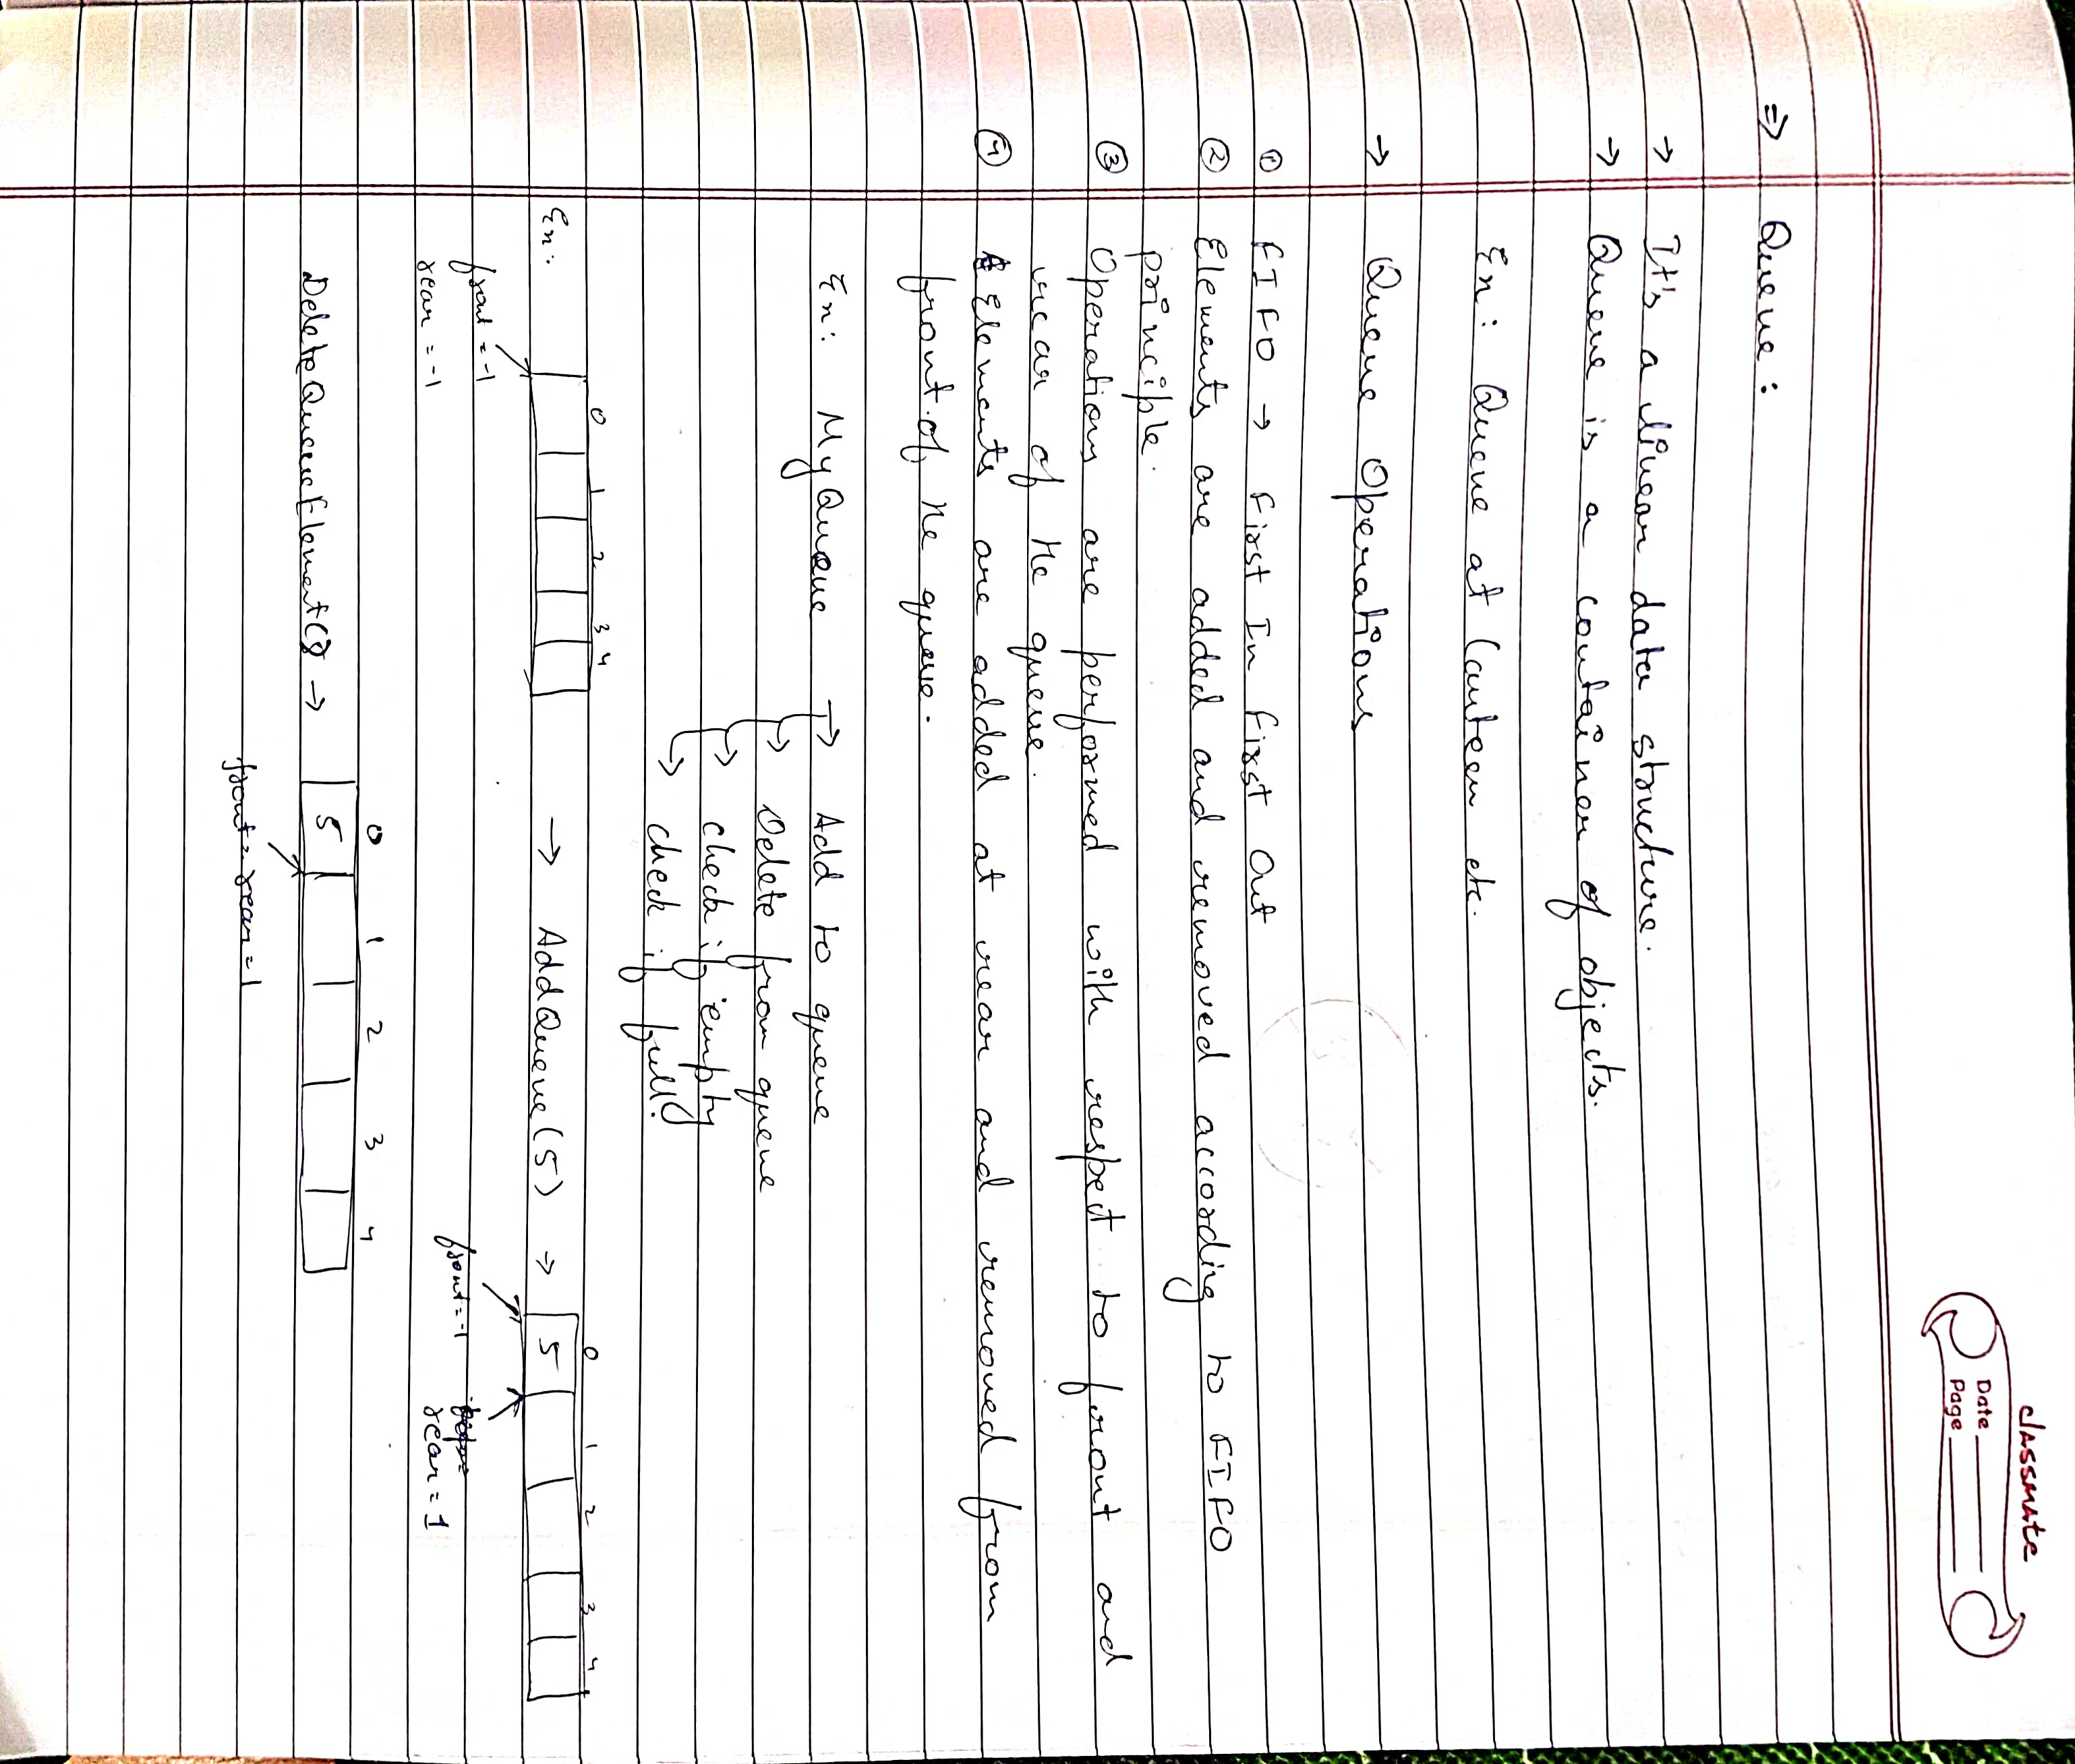 classmate
Date
Page
⇒ Queue :
→ It's a linear data structure.
→ Queue is a container of objects.
Ex : Queue at Canteen etc.
→ Queue Operations
① FIFO → First In First Out
② Elements are added and removed according to FIFO
principle.
③ Operations are performed with respect to front and
rear of the queue.
④ Elements are added at rear and removed from
front of the queue.
Ex : My Queue → Add to queue
→ Delete from queue
→ check if empty
→ check if full.
0 1 2 3 4
0 1 2 3 4
Ex : → AddQueue(5) → 5
front = -1
front = -1
rear = -1
rear = 1
0 1 2 3 4
DeleteQueueElement() → 5
front = rear = 1